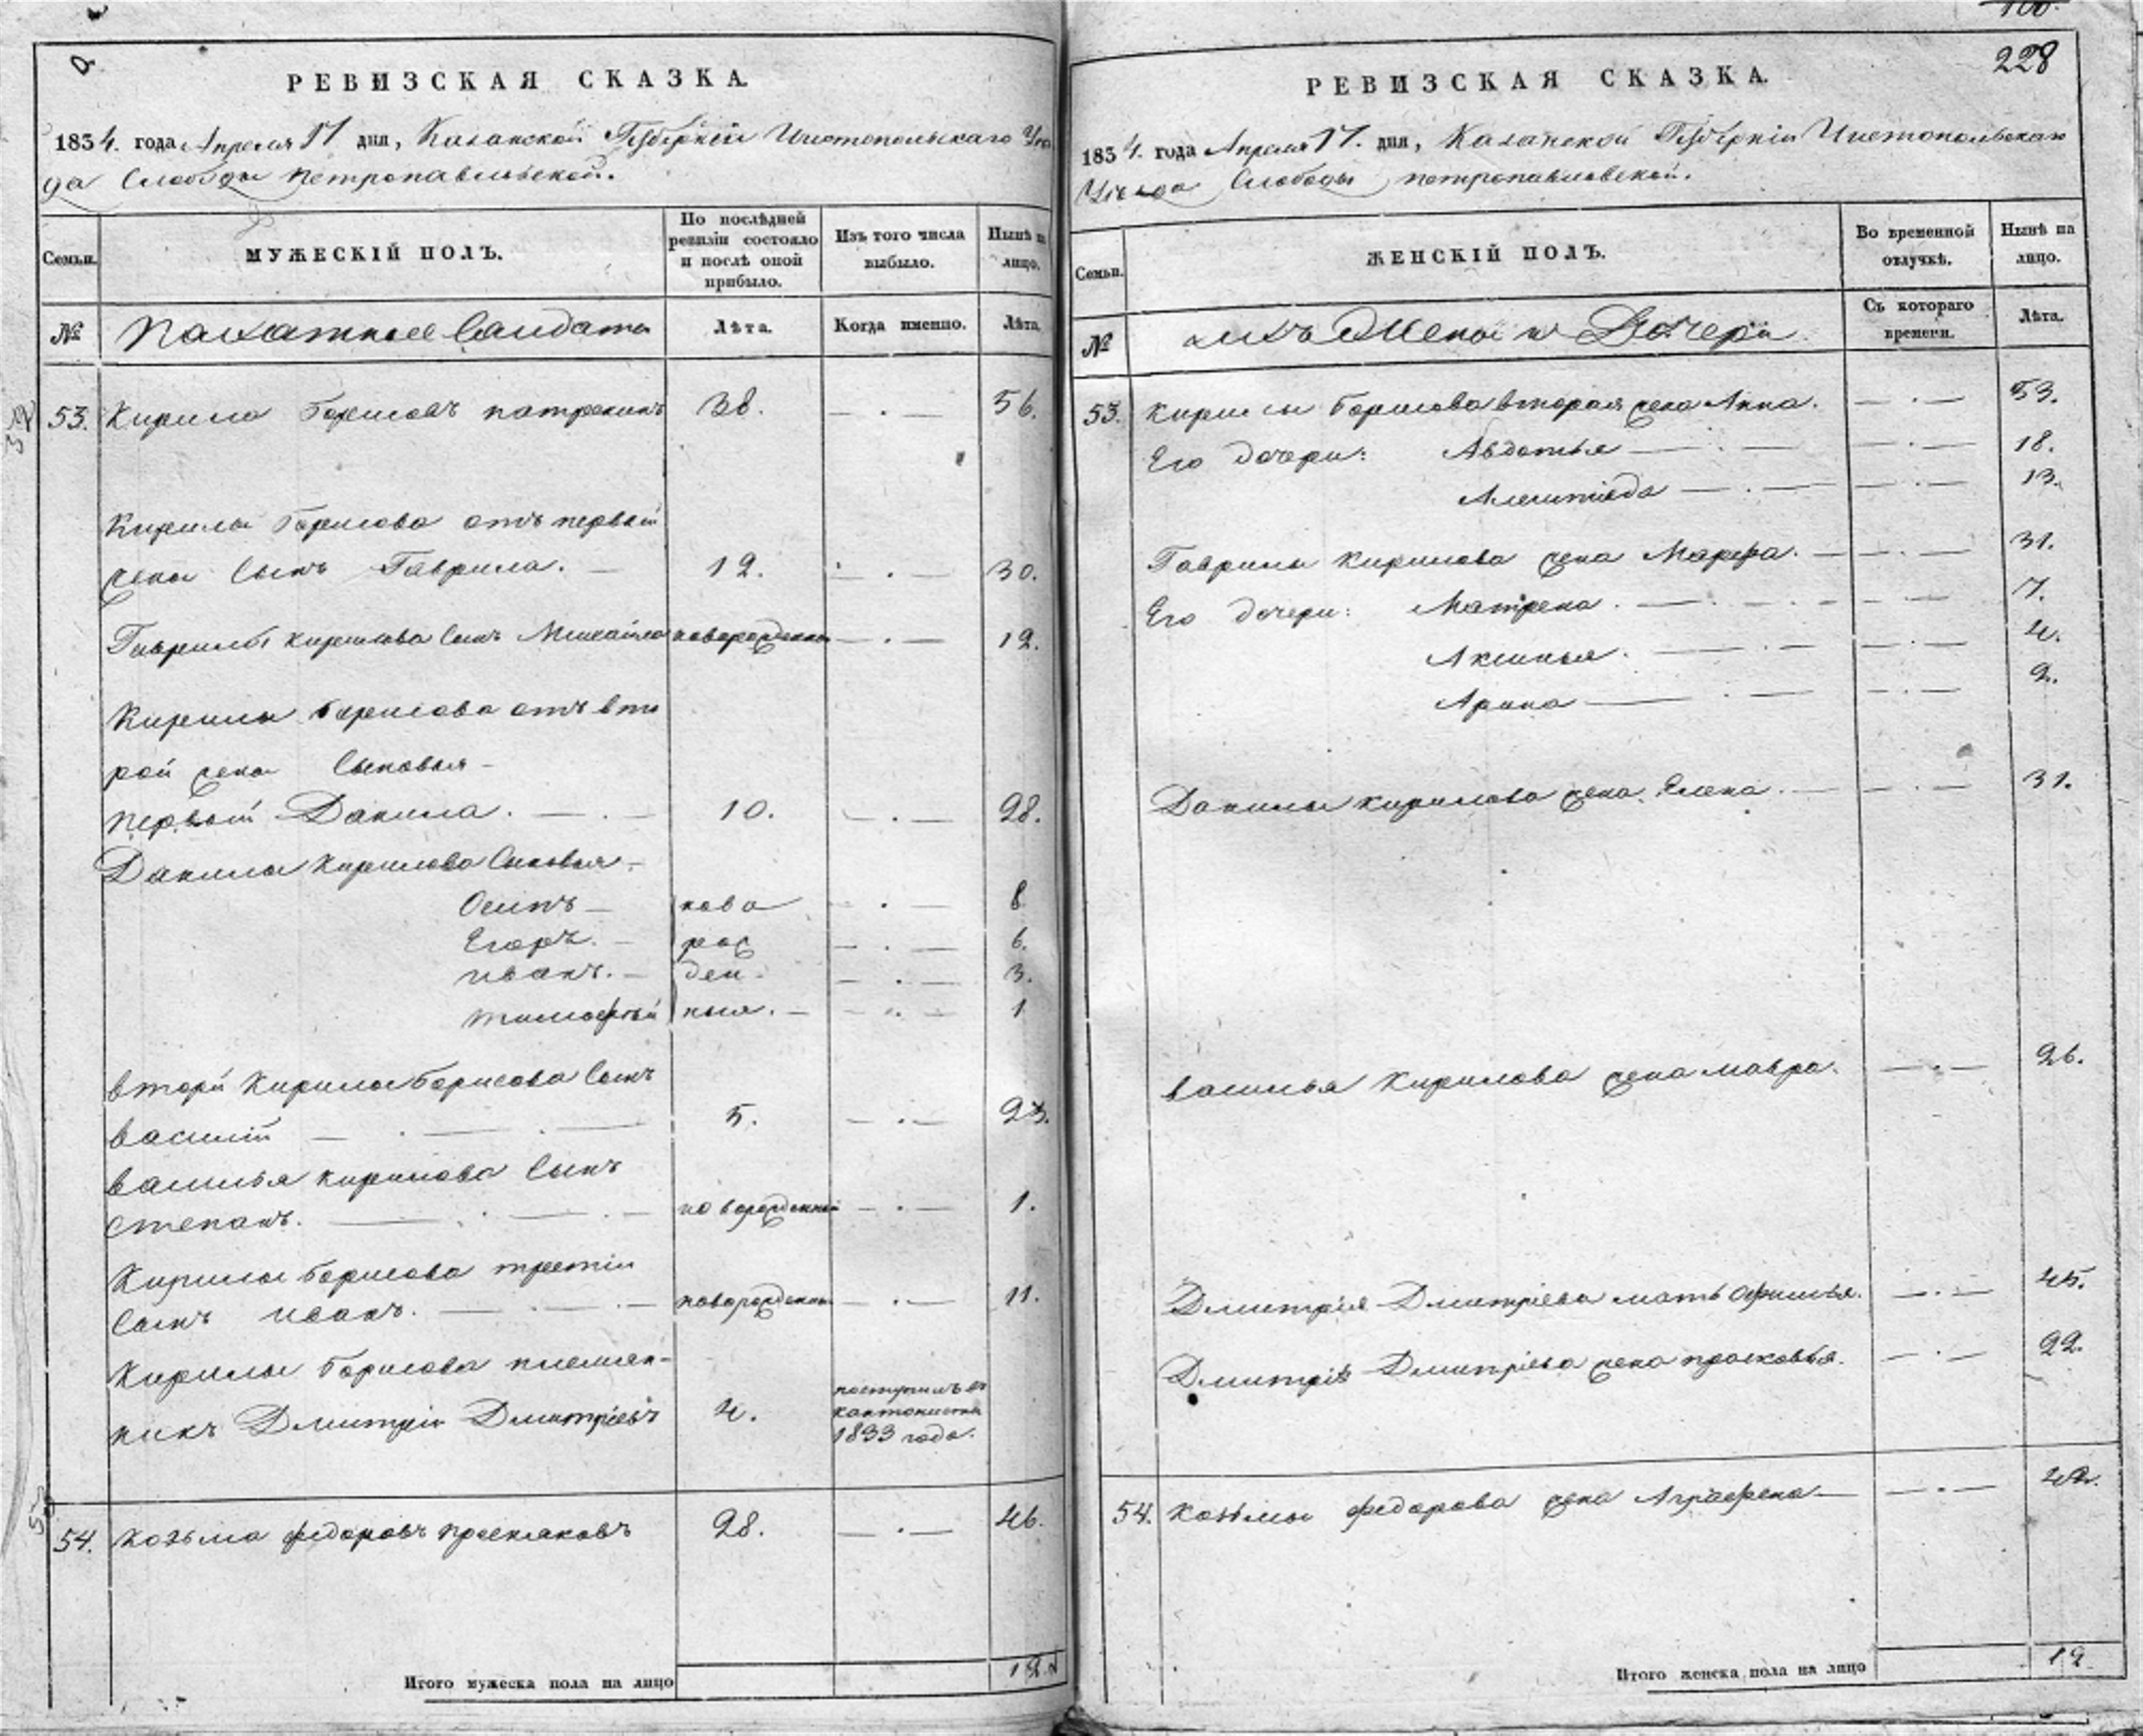 РЕВИЗСКАЯ СКАЗКА.
1834. года Апреля 17 дня, Казанской Губерніи Чистопольскаго Уез
да Слободы Петропавловской.
Семьи.
МУЖЕСКІЙ ПОЛЪ.
По послѣдней ревизіи состояло и послѣ оной прибыло.
Изъ того числа выбыло.
Нынѣ на лицо.
№
Пахатные Солдаты
Лѣта.
Когда именно.
Лѣта.
53. Кирила Борисовъ 38. 56.
Кирилы Борисова отъ первой
жены Сынъ Гаврила. 12. 30.
Гаврилы Кирилова Сынъ Михайла новорожденный 12.
Кирилы Борисова отъ вто
рой жены Сыновья
первый Данила. 10. 28.
Данилы Кирилова Сыновья
Осипъ ново 8
Егоръ. рож 6.
Иванъ. ден 3.
Тимофей ныя. 1
второй Кирилы Борисова Сынъ
Василій 5. 23.
Василья Кирилова Сынъ
Степанъ. новорожденный 1.
Кирилы Борисова третій
Сынъ Иванъ. новорожденный 11.
Кирилы Борисова племян-
никъ Дмитрій Дмитріевъ 4. поступилъ въ кантонисты 1833 года.
54. Козьма Федоровъ 28. 46.
Итого мужеска пола на лицо
12
228
РЕВИЗСКАЯ СКАЗКА.
1834. года Апреля 17. дня, Казанской Губерніи Чистопольскаго
Уезда Слободы Петропавловской.
Семьи.
ЖЕНСКІЙ ПОЛЪ.
Во временной отлучкѣ.
Нынѣ на лицо.
№
ихъ Жены и Дочери
Съ котораго времени.
Лѣта.
53. Кирилы Борисова вторая жена Анна. 53.
Его дочери: Авдотья 18.
13.
Гаврилы Кирилова жена Марфа. 31.
Его дочери: Матрена. 7.
Аксинья. 4.
Арина 2.
Данилы Кирилова жена Елена. 31.
Василья Кирилова жена Мавра. 26.
Дмитрія Дмитріева мать Офимья. 45.
Дмитрія Дмитріева жена Прасковья. 22.
54. Козьмы Федорова жена Аграфена 42.
Итого женска пола на лицо 12